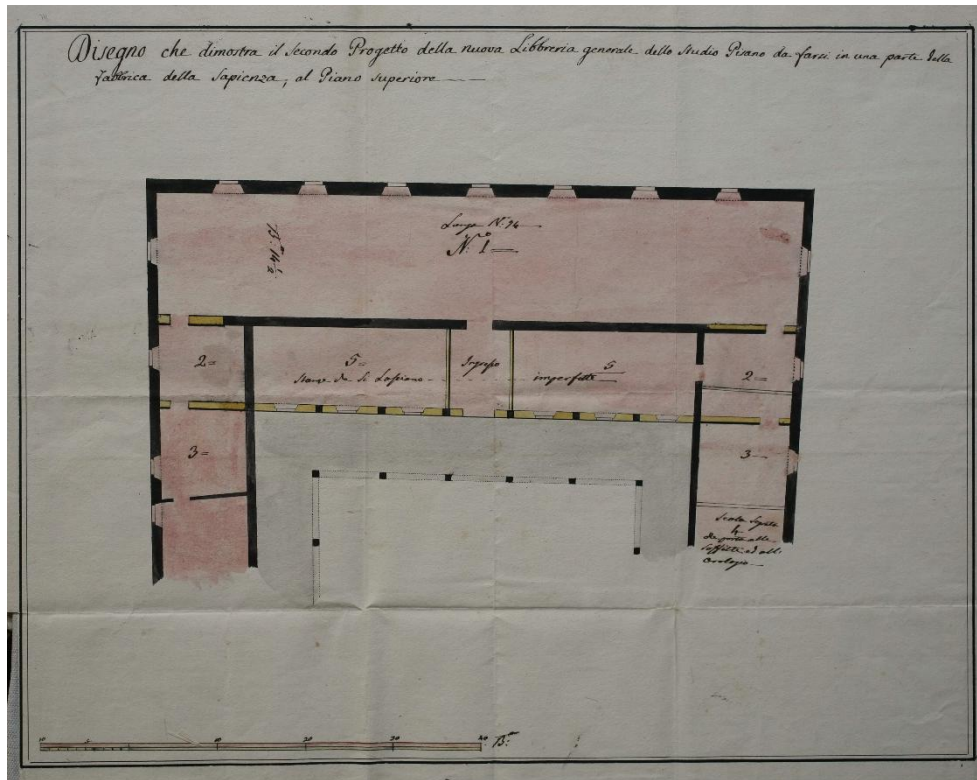 Disegno che dimostra il Secondo Progetto della nuova Libbreria generale dello Studio Pisano da farsi in una parte della
fabbrica della Sapienza, al Piano superiore
Largo N.º 74
N.º 1
B.ª 14 ½
2
5
Ingresso
5
2
Stanze da Si Lasciano imperfette
3
3
Scala Segreta
4
da alle
Soffitte ed all
Orologio
10 5 10 20 30 40 B.ª